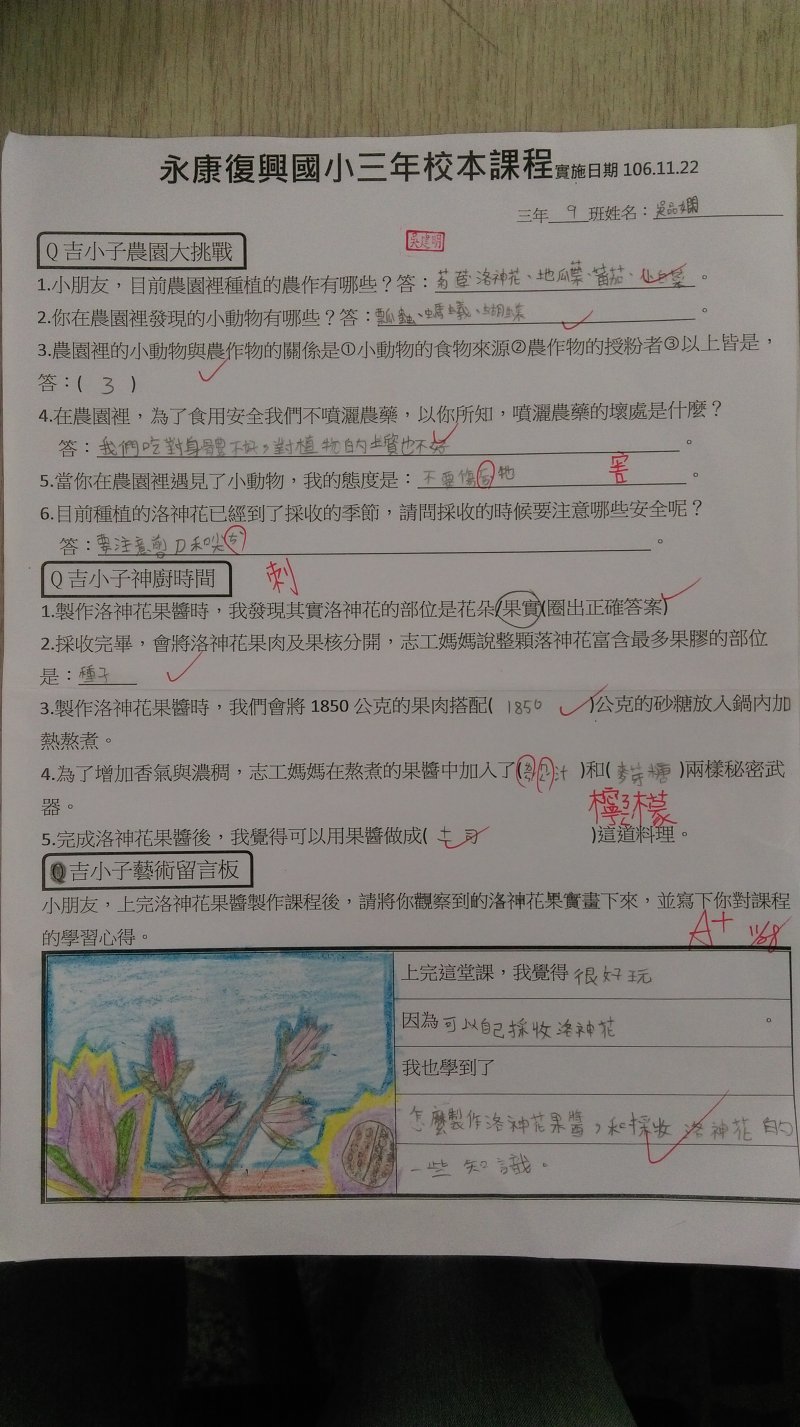 永康復興國小三年校本課程實施日期 106.11.22
三年 9 班姓名：吳品嫻
Q 吉小子農園大挑戰
吳建明
1.小朋友，目前農園裡種植的農作有哪些？答：萵苣、洛神花、地瓜葉、蕃茄、小白菜。
2.你在農園裡發現的小動物有哪些？答：瓢蟲、螞蟻、蝴蝶。
3.農園裡的小動物與農作物的關係是①小動物的食物來源②農作物的授粉者③以上皆是，
答：( 3 )
4.在農園裡，為了食用安全我們不噴灑農藥，以你所知，噴灑農藥的壞處是什麼？
答：我們吃對身體不好，對植物的土壤也不好。
5.當你在農園裡遇見了小動物，我的態度是：不要傷牠。
害
6.目前種植的洛神花已經到了採收的季節，請問採收的時候要注意哪些安全呢？
答：要注意剪刀和尖。
Q 吉小子神廚時間
刺
1.製作洛神花果醬時，我發現其實洛神花的部位是花朵/果實(圈出正確答案)
2.採收完畢，會將洛神花果肉及果核分開，志工媽媽說整顆落神花富含最多果膠的部位
是：種子
3.製作洛神花果醬時，我們會將 1850 公克的果肉搭配( 1850 )公克的砂糖放入鍋內加
熱熬煮。
4.為了增加香氣與濃稠，志工媽媽在熬煮的果醬中加入了( 汁 )和( 麥芽糖 )兩樣秘密武
器。
檸檬
5.完成洛神花果醬後，我覺得可以用果醬做成( 土司 )這道料理。
Q吉小子藝術留言板
小朋友，上完洛神花果醬製作課程後，請將你觀察到的洛神花果實畫下來，並寫下你對課程
的學習心得。
A+ 11/28
上完這堂課，我覺得 很好玩
因為可以自己採收洛神花。
我也學到了
怎麼製作洛神花果醬，和採收洛神花的
一些知識。